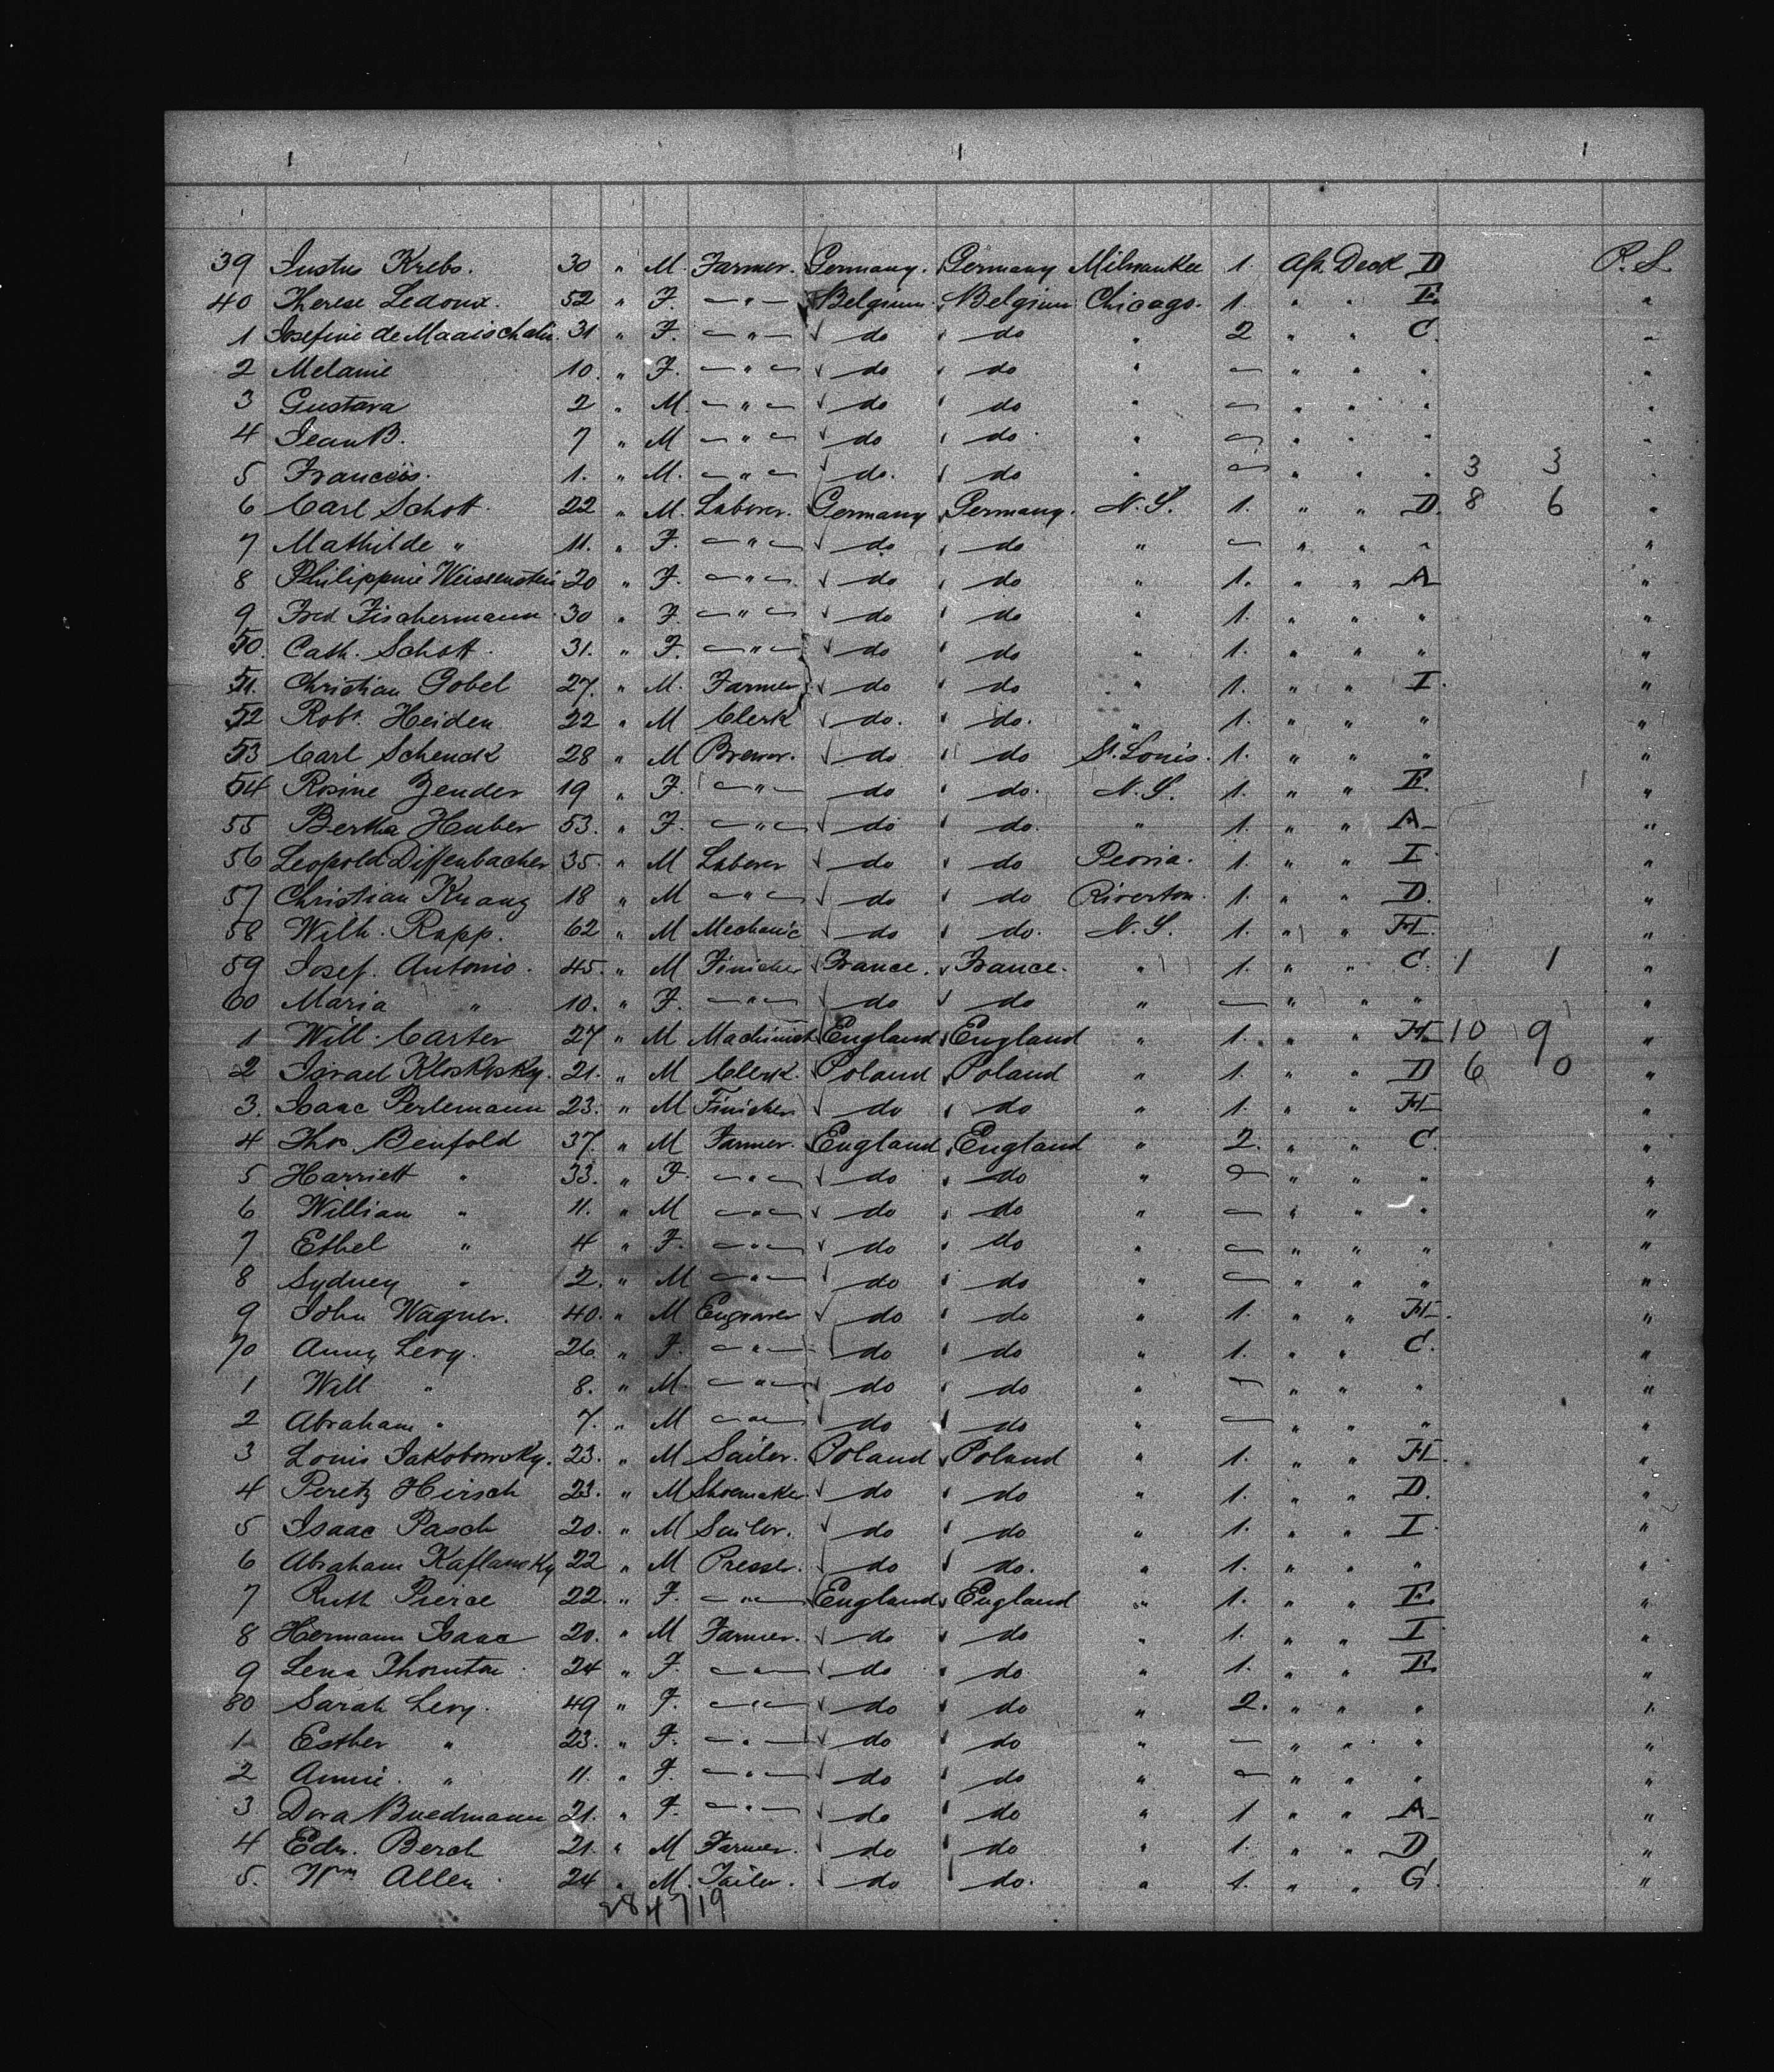 39 Justus Krebs. 30 " M. Farmer. Germany. Germany Milwaukee 1. Aft Deck D P. L.
40 Therese Ledoux. 52 " F. — " — Belgium. Belgium Chicago. 1. " " E. "
1 Josefine de 31 " F. — " — do do " 2 " " C. "
2 Melanie 10. " F. — " — do do " — " " " "
3 Gustava 2 " M. — " — do do " — " " " "
4 Jean B. 7 " M — " — do do " — " " " "
5 1. " M. — " — do. do " — " " " 3 3 "
6 Carl Schott. 22 " M. Laborer. Germany Germany. N.Y. 1. " " D. 8 6 "
7 Mathilde " 11. " F. — " — do do " — " " " "
8 Philippine Weissenstein 20 " F. — " — do do " 1. " " A "
9 Fred Fischermann. 30 " F. — " — do do " 1. " " " "
50. Cath. Schott. 31. " F. — " — do do " 1. " " " "
51. Christian Gobel 27. " M. Farmer do do " 1. " " I. "
52 Robt. Heiden 22 " M Clerk do. do. " 1. " " " "
53 Carl Schenck 28 " M Brewer. do do St. Louis. 1. " " " "
54 Rosine Zender 19 " F. — " — do do. N.Y. 1. " " E. "
55 Bertha Huber 53. " F. — " — do do. " 1. " " A "
56 Leopold Diffenbacher 35. " M Laborer do do Peoria. 1. " " I. "
57 Christian Knang 18 " M — " — do do Riverton. 1. " " D. "
58 Wilh. Rapp. 62 " M Mechanic do do. N.Y. 1. " " H. "
59 Josef. Antonio. 45. " M Finisher France. France. " 1. " " C. 1 1 "
60 Maria " 10. " F. — " — do do " — " " " "
1 Will. Carter 27 " M Machinist England England " 1. " " H. 10 9 "
2 Israel 21. " M Clerk. Poland Poland " 1. " " D 6 0 "
3. Isaac Perlemann 23. " M Finisher do do " 1. " " H "
4 Thos. Benfold 37. " M Farmer. England England " 2. " " C. "
5 Harriett " 33. " F. — " — do do " — " " " "
6 William " 11. " M — " — do do " — " " " "
7 Ethel " 4 " F. — " — do do " — " " " "
8 Sydney " 2. " M — " — do do " — " " " "
9 John Wagner. 40. " M Engraver do do " 1. " " H. "
70 Anny Levy. 26. " F. — " — do do " 1. " " C. "
1 Will " 8. " M. — " — do do " — " " " "
2 Abraham " 7. " M — " — do do " — " " " "
3 Louis Jakobowsky. 23. " M Sailer. Poland Poland " 1. " " H. "
4 Peretz Hirsch 23. " M Shoemaker do do " 1. " " D. "
5 Isaac Pasch 20. " M Sailer. do do " 1. " " I. "
6 Abraham Kaflansky 22 " M Presser. do do. " 1. " " " "
7 Ruth Pierce 22. " F. — " — England England " 1. " " E. "
8 Hermann Isaac 20. " M Farmer. do do " 1. " " I. "
9 Lena Thornton 24 " F. — " — do do " 1. " " E. "
80 Sarah Levy. 49 " F. — " — do do " 2. " " " "
1 Esther " 23. " F. — " — do do " — " " " "
2 Annie. " 11. " F. — " — do do " — " " " "
3 Dora 21. " F. — " — do do " 1 " " A "
4 Edw. Berch 21. " M Farmer. do do " 1. " " D "
5. Wm Allen 24 " M. Tailer. do do. " 1. " " G. "
28 4719